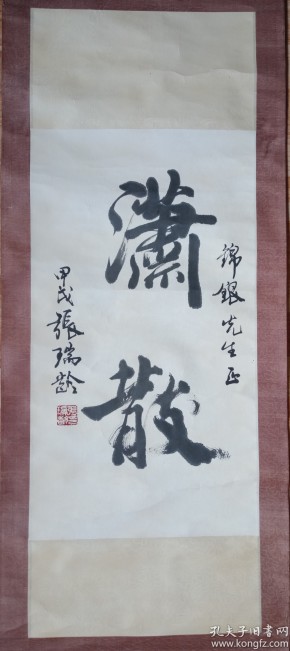 錦銀先生正
瀟散
甲戌張瑞齡
孔夫子旧书网
www.kongfz.com